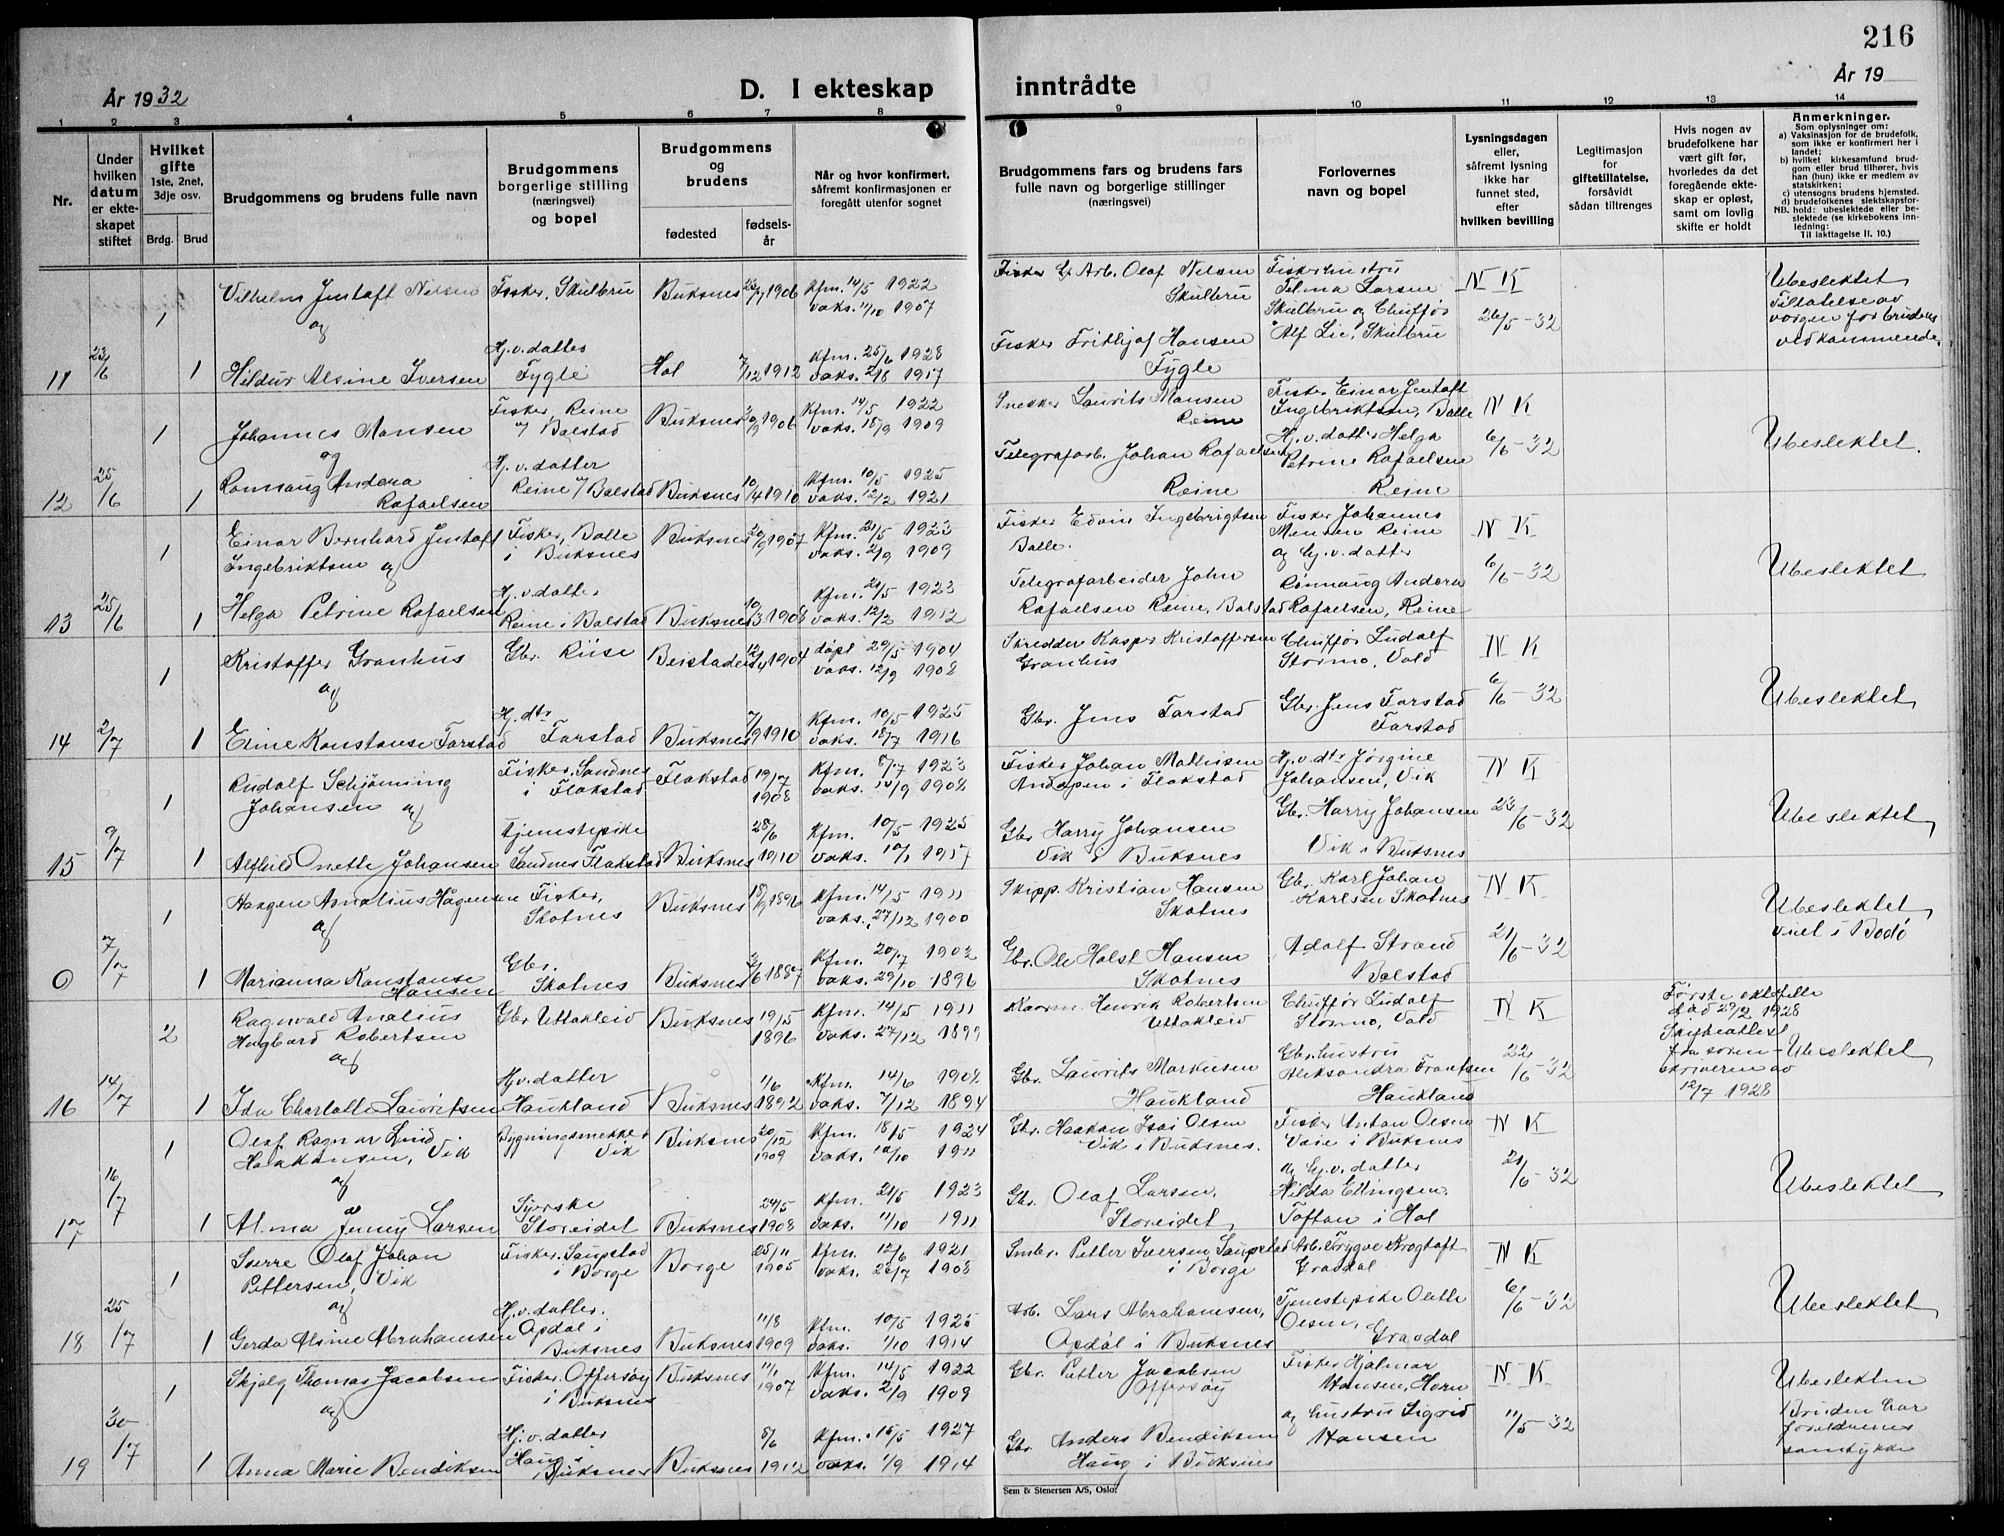 216
År 1932
D. I ekteskap
inntrådte
År 19
1 2 3 4 5 6 7 8 9 10 11 12 13 14
Nr.
Under hvilken datum er ekteskapet stiftet
Hvilket gifte
1ste, 2net, 3dje osv.
Brdg. Brud
Brudgommens og brudens fulle navn
Brudgommens borgerlige stilling (næringsvei) og bopel
Brudgommens og brudens
fødested
fødselsår
Når og hvor konfirmert, såfremt konfirmasjonen er foregått utenfor sognet
Brudgommens fars og brudens fars fulle navn og borgerlige stillinger (næringsvei)
Forlovernes navn og bopel
Lysningsdagen eller, såfremt lysning ikke har funnet sted, efter hvilken bevilling
Legitimasjon for giftetillatelse, forsåvidt sådan tiltrenges
Hvis nogen av brudefolkene har vært gift før, hvorledes da det foregående ekteskap er opløst, samt om lovlig skifte er holdt
Anmerkninger.
Som oplysninger om:
a) Vaksinasjon for de brudefolk, som ikke er konfirmert her i landet;
b) hvilket kirkesamfund brudgom eller brud tilhører, hvis han (hun) ikke er medlem av statskirken;
c) utensogns brudens hjemsted.
d) brudefolkenes slektskapsforhold: ubeslektede eller beslektede (se kirkebokens innledning:
NB.
Til iakttagelse II. 10.)
1 Vilhelm Jentoft Nilsen Fisker, Skulbru Buksnes 1906 Kfm. 14/5 1922
og vaks. 11/10 1907
Fisker Gb Arb. Olaf Nilsen Skulbru
Fiskerhustru Telma Larsen Skulbru og Chuffør Alf Lie, Skulbru
N K 26/5-32
Ubeslektet Tillatelse av vergen for brudens vedkommende.
11 23/6 1 Hildur Alsine Iversen Hj.v.datter Fygle Hol 7/12 1912 Kfm. 25/6 1928
vaks. 2/8 1917
Fisker Frithjof Hansen Fygle
1 Johannes Monsen Fisker, Reine i/ Balstad Buksnes 1906 Kfm. 14/5 1922
og vaks. 15/9 1909
Snekker Laurits Monsen Reine
Fisker Einar Jentoft Ingebriktsen, Balle
N K 6/6-32
Ubeslektet.
12 25/6 1 Rønnaug Andora Rafaelsen Hj.v.datter Reine i/ Balstad Buksnes 10/4 1910 Kfm. 10/5 1925
vaks. 12/2 1921
Telegrafarb. Johan Rafaelsen Reine
Hj.v.datter Helga Petrine Rafaelsen Reine
1 Einar Bernhard Jentoft Ingebriktsen og Fisker, Balle i Buksnes Buksnes 20/9 1907 Kfm. 21/5 1923
vaks. 2/9 1909
Fisker Edvin Ingebrigtsen Balle.
Fisker Johannes Reine og Hj.v.datter Rønnaug Andora Rafaelsen, Reine
N K 6/6-32
Ubeslektet
13 25/6 1 Helga Petrine Rafaelsen Hj.v.datter Reine i Balstad Buksnes 10/3 1908 Kfm. 21/5 1923
vaks. 12/2 1912
Telegrafarbeider John Rafaelsen Reine, Balstad
1 Kristoffer Granhus Gbr. Riise Beistaden 12/4 1904 døpt 29/5 1904
og vaks. 12/9 1908
Skredder Kasper Kristoffersen Granhus
Chuffør Ludolf Stormo, Vold
N K 6/6-32
Ubeslektet
14 2/7 1 Eline Konstanse Farstad Hj.dtr Farstad Buksnes 7/9 1910 Kfm. 10/5 1925
vaks. 18/7 1916
Gbr. Jens Farstad
Gbr. Jens Farstad Farstad
1 Rudolf Schjønning Johansen og Fisker, Sandnes i Flakstad Flakstad 19/7 1908 Kfm. 8/7 1923
vaks. 10/9 1908
Fisker Johan Mathisen Andopen i Flakstad
Hj.v.dtr Jørgine Johansen, Vik
N K 23/6-32
Ubeslektet
15 9/7 1 Alfhild Onette Johansen Tjenestepike Sandnes Flakstad Buksnes 28/6 1910 Kfm. 10/5 1925
vaks. 10/1 1917
Gbr Harry Johansen Vik i Buksnes
Gbr. Harry Johansen Vik i Buksnes
1 Haagen Amalius Hågensen og Fisker, Skotnes Buksnes 18/9 1896 Kfm. 14/5 1911
vaks. 27/12 1900
Skipp. Kristian Hansen Skotnes
Gbr. Karl Johan Karlsen Skotnes
N K 21/6-32
Ubeslektet, viet i Bodø
0 7/7 1 Marianna Konstanse Hansen Gbr. Skotnes Buksnes 2/6 1887 Kfm. 20/7 1902
vaks. 29/10 1896
Gbr. Ole Holst Hansen Skotnes
Adolf Strand Balstad
2 Ragnvald Analius Hagbard Robertsen og Gbr Uttakleiv Buksnes 19/5 1896 Kfm. 14/5 1911
vaks. 27/12 1899
Henrik Robertsen Uttakleiv
Chuffør Ludolf Stormo, Vold
N K 22/6-32
Første ektefelle død 29/2 1928 Skifteattest fra sorenskriveren av 12/7 1928
Ubeslektet
16 14/7 1 Ida Charlotte Lauritsen Hj.v.datter Haukland Buksnes 1/6 1892 Kfm. 14/6 1908
vaks. 7/12 1894
Gbr. Laurits Markusen Haukland
Gbr.hustru Aleksandra Frantsen Haukland
1 Olaf Ragnar Lind Haakonsen, Vik og Bygningssnekker Vik Buksnes 20/12 1909 Kfm. 18/5 1924
vaks. 10/10 1911
Gbr. Haakon Isai Olsen Vik i Buksnes.
Fisker Anton Olsen Voie i Buksnes og Hj.v.datter Hilda Ellingsen. Toftan i Hol
N K 21/6-32
Ubeslektet
17 16/7 1 Alma Jenny Larsen Syerske Storeidet Buksnes 24/5 1908 Kfm. 21/5 1923
vaks. 11/10 1911
Gbr. Olaf Larsen. Storeidet,
1 Sverre Olaf Johan Pettersen, Vik og Fisker, Saupstad i Borge Borge 25/11 1905 Kfm. 12/6 1921
vaks. 26/7 1908
Smbr. Petter Iversen Saupstad i Borge
Arb. Trygve Krogtoft Gravdal
N K 6/6-32
Ubeslektet
18 25/7 1 Gerda Alsine Abrahamsen Hj.v.datter. Opdal i Buksnes Buksnes 11/8 1909 Kfm. 10/5 1925
vaks. 1/10 1914
Arb. Lars Abrahamsen, Opdal i Buksnes
Tjenestepike Olette Olsen, Gravdal
1 Skjalg Thomas Jacobsen og Fisker. Offersøy i Buksnes Buksnes 11/1 1907 Kfm. 14/5 1922
vaks. 2/9 1909
Gbr. Petter Jacobsen Offersøy
Fisker Hjalmar Hansen, Horn og hustru Sigrid Hansen
N K 11/5-32
Ubeslekten Bruden har foreldrenes samtykke
19 30/7 1 Anna Marie Bendiksen Hj.v.datter Haug i Buksnes Buksnes 8/6 1912 Kfm. 15/5 1927
vaks. 1/9 1914
Gbr. Anders Bendiksen Haug i Buksnes
Sem & Stenersen A/S, Oslo.